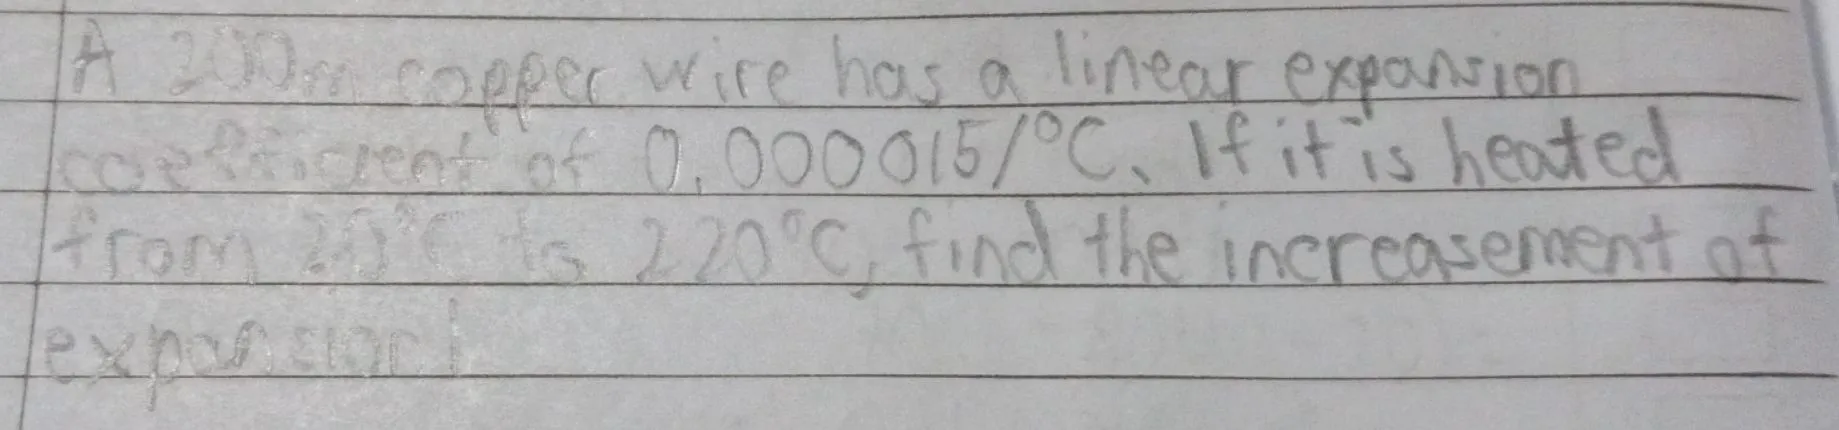 A 200m copper wire has a linear expansion
coefficient of 0,000015/°C. If it is heated
from 20°C to 220°C, find the increasement of
expansion!